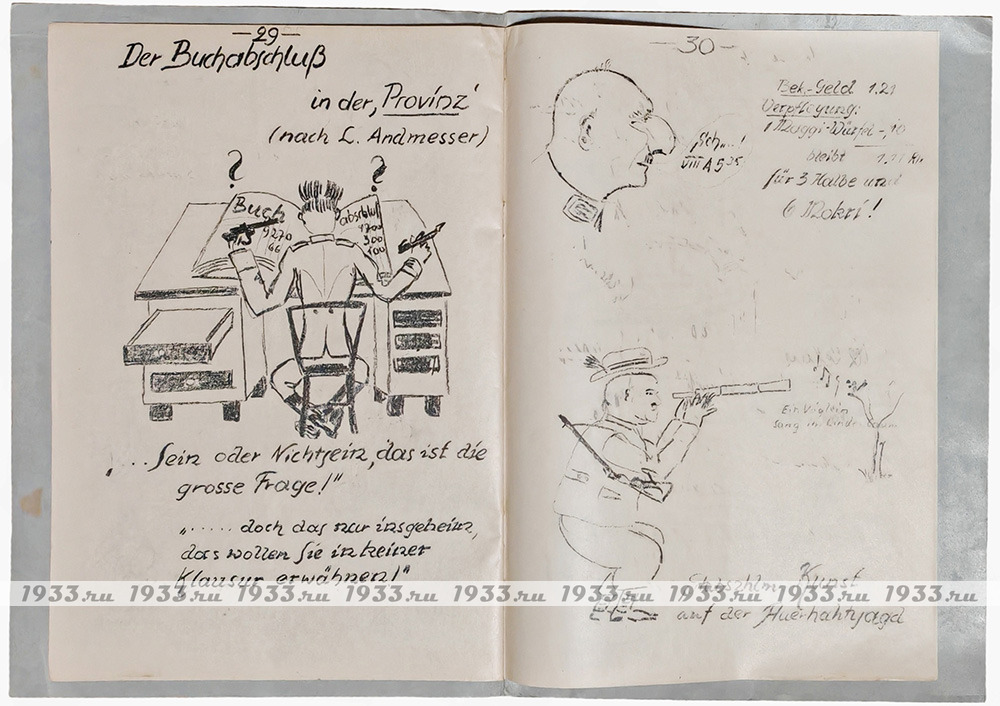 —29—
Der Buchabschluß
in der ‚Provinz'
(nach L. Andmesser)
? ?
Buch abschluß
4270 1700
66 300
100
„... Sein oder Nichtsein, das ist die
grosse Frage!"
„..... doch das nur insgeheim,
das wollen Sie in keiner
Klausur erwähnen!"
—30—
Bek.-Geld 1.21
Verpflegung:
1 Maggi-Würfel -,10
bleibt 1.11
für 3 Halbe und
6 Mokri!
VIII A 5
Ein Vöglein
sang im Lindenbaum
Kunst
auf der Auerhahnjagd
1933.ru 1933.ru 1933.ru 1933.ru 1933.ru 1933.ru 1933.ru 1933.ru